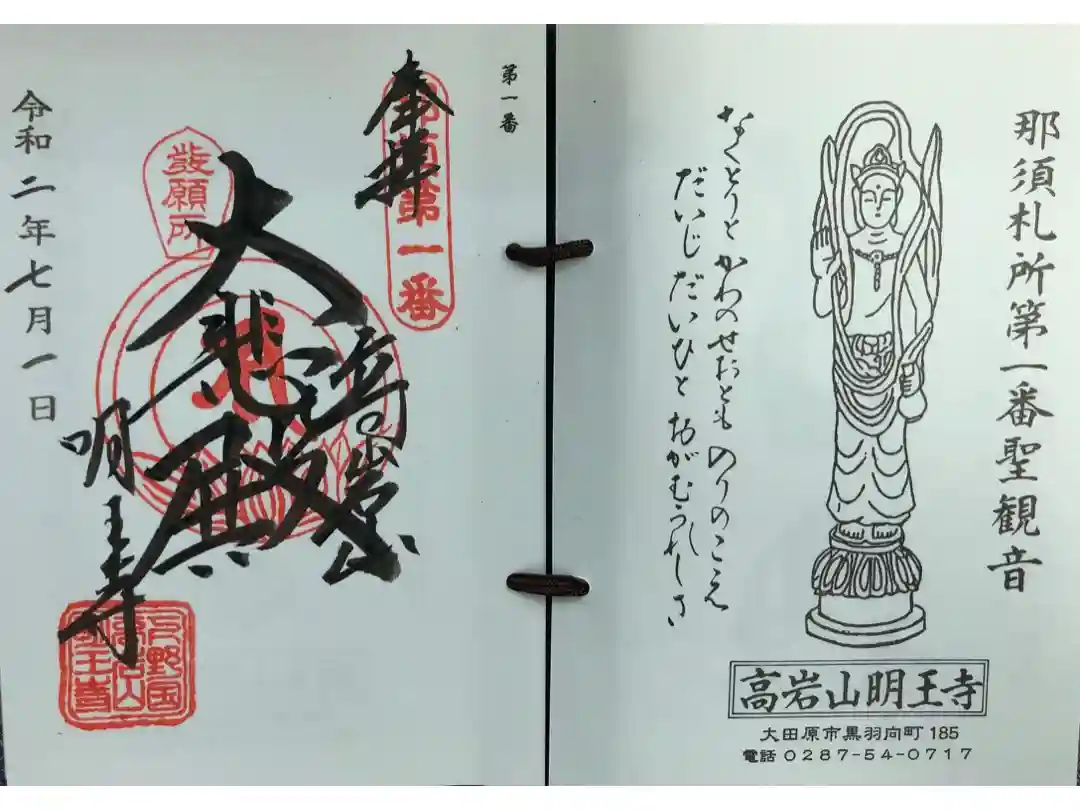 那須札所第一番聖観音
なくとりと かわのせおとも のりのこえ
だいじだいひと おがむうれしさ
高岩山明王寺
大田原市黒羽向町185
電話 0287-54-0717
第一番
奉拝
那須第一番
発願所
高岩山
大悲殿
明王寺
令和二年七月一日